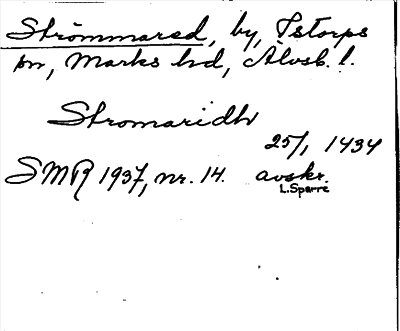 Strömmared, by, Istorps
sn, Marks hd, Älvsb. l.
Stromaridh
25/1 1434
SMR 1937, nr. 14. avskr.
L.Sparre